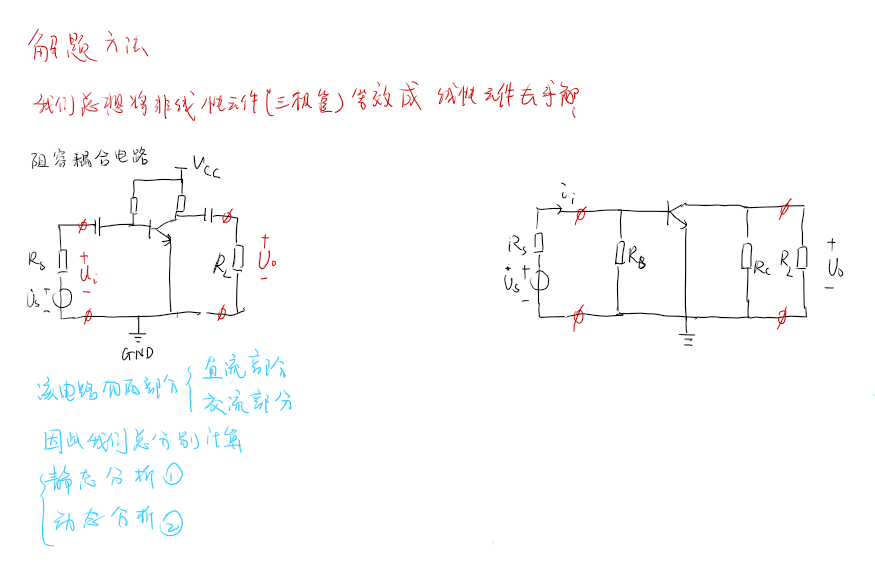 解题方法
我们总想将非线性元件(三极管)等效成 线性元件去求解
阻容耦合电路
VCC
Rs
+
Ui
-
U̇s
+
-
RL
+
Uo
-
GND
ii
Rs
U̇s
+
-
RB
Rc
RL
+
Uo
-
该电路有两部分
直流部分
交流部分
因此我们总分别计算
静态分析①
动态分析②